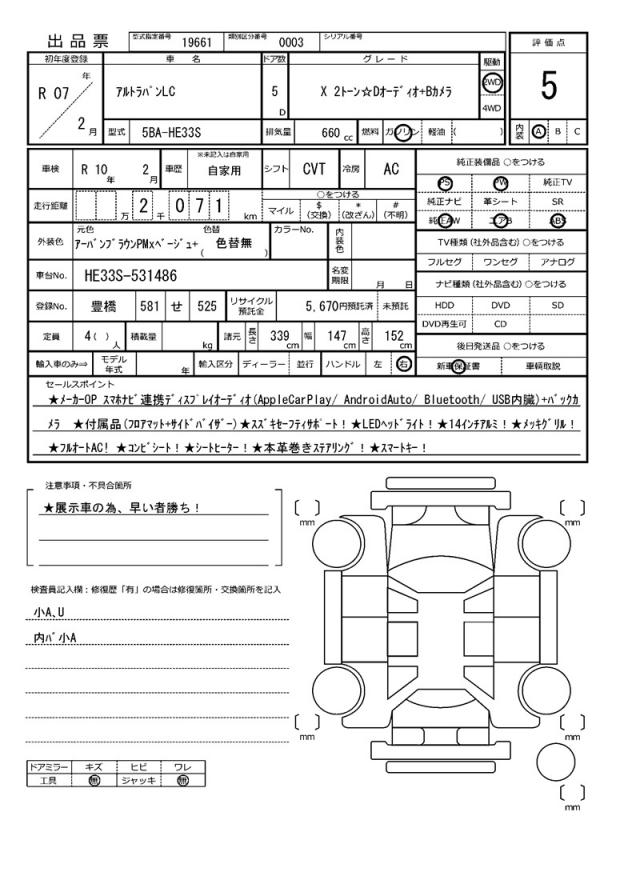 出品票 型式指定番号 19661 類別区分番号 0003 シリアル番号
初年度登録 車名 ドア数 グレード 駆動 評価点
R 07 年 2 月 アルトラパンLC 5 D X 2トーン☆Dオーディオ+Bカメラ 2WD 4WD 5
型式 5BA-HE33S 排気量 660 cc 燃料 ガソリン 軽油 ( ) 内装 A B C
車検 R 10 年 2 月 車歴 ※未記入は自家用 自家用 シフト CVT 冷房 AC 純正装備品 ○をつける
PS PW 純正TV
走行距離 万 2 千 0 7 1 km ○をつける 純正ナビ 革シート SR
マイル $(交換) *(改ざん) #(不明) 純正AW エアB ABS
外装色 元色 色替 カラーNo. 内装色 TV種類(社外品含む)○をつける
アーバンブラウンPMxベージュ+ ( 色替無 ) フルセグ ワンセグ アナログ
車台No. HE33S-531486 名変期限 月 日 ナビ種類(社外品含む)○をつける
登録No. 豊橋 581 せ 525 リサイクル預託金 5,670円預託済 未預託 HDD DVD SD
DVD再生可 CD
定員 4( ) 人 積載量 kg 諸元 長さ 339 cm 幅 147 cm 高さ 152 cm 後日発送品 ○をつける
輸入車のみ⇒ モデル年式 年 輸入区分 ディーラー 並行 ハンドル 左 右 新車保証書 車輌取説
セールスポイント
★メーカーOP スマホナビ連携ディスプレイオーディオ(AppleCarPlay/ AndroidAuto/ Bluetooth/ USB内臓)+バックカ
メラ ★付属品(フロアマット+サイドバイザー)★スズキセーフティサポート！★LEDヘッドライト！★14インチアルミ！★メッキグリル！
★フルオートAC！★コンビシート！★シートヒーター！★本革巻きステアリング！★スマートキー！
注意事項・不具合箇所
★展示車の為、早い者勝ち！
検査員記入欄：修復歴「有」の場合は修復箇所・交換箇所を記入
小A、U
内バ小A
ドアミラー キズ ヒビ ワレ
工具 無 ジャッキ 無
[ ] mm
[ ] mm
[ ] mm
[ ] mm
[ ] mm